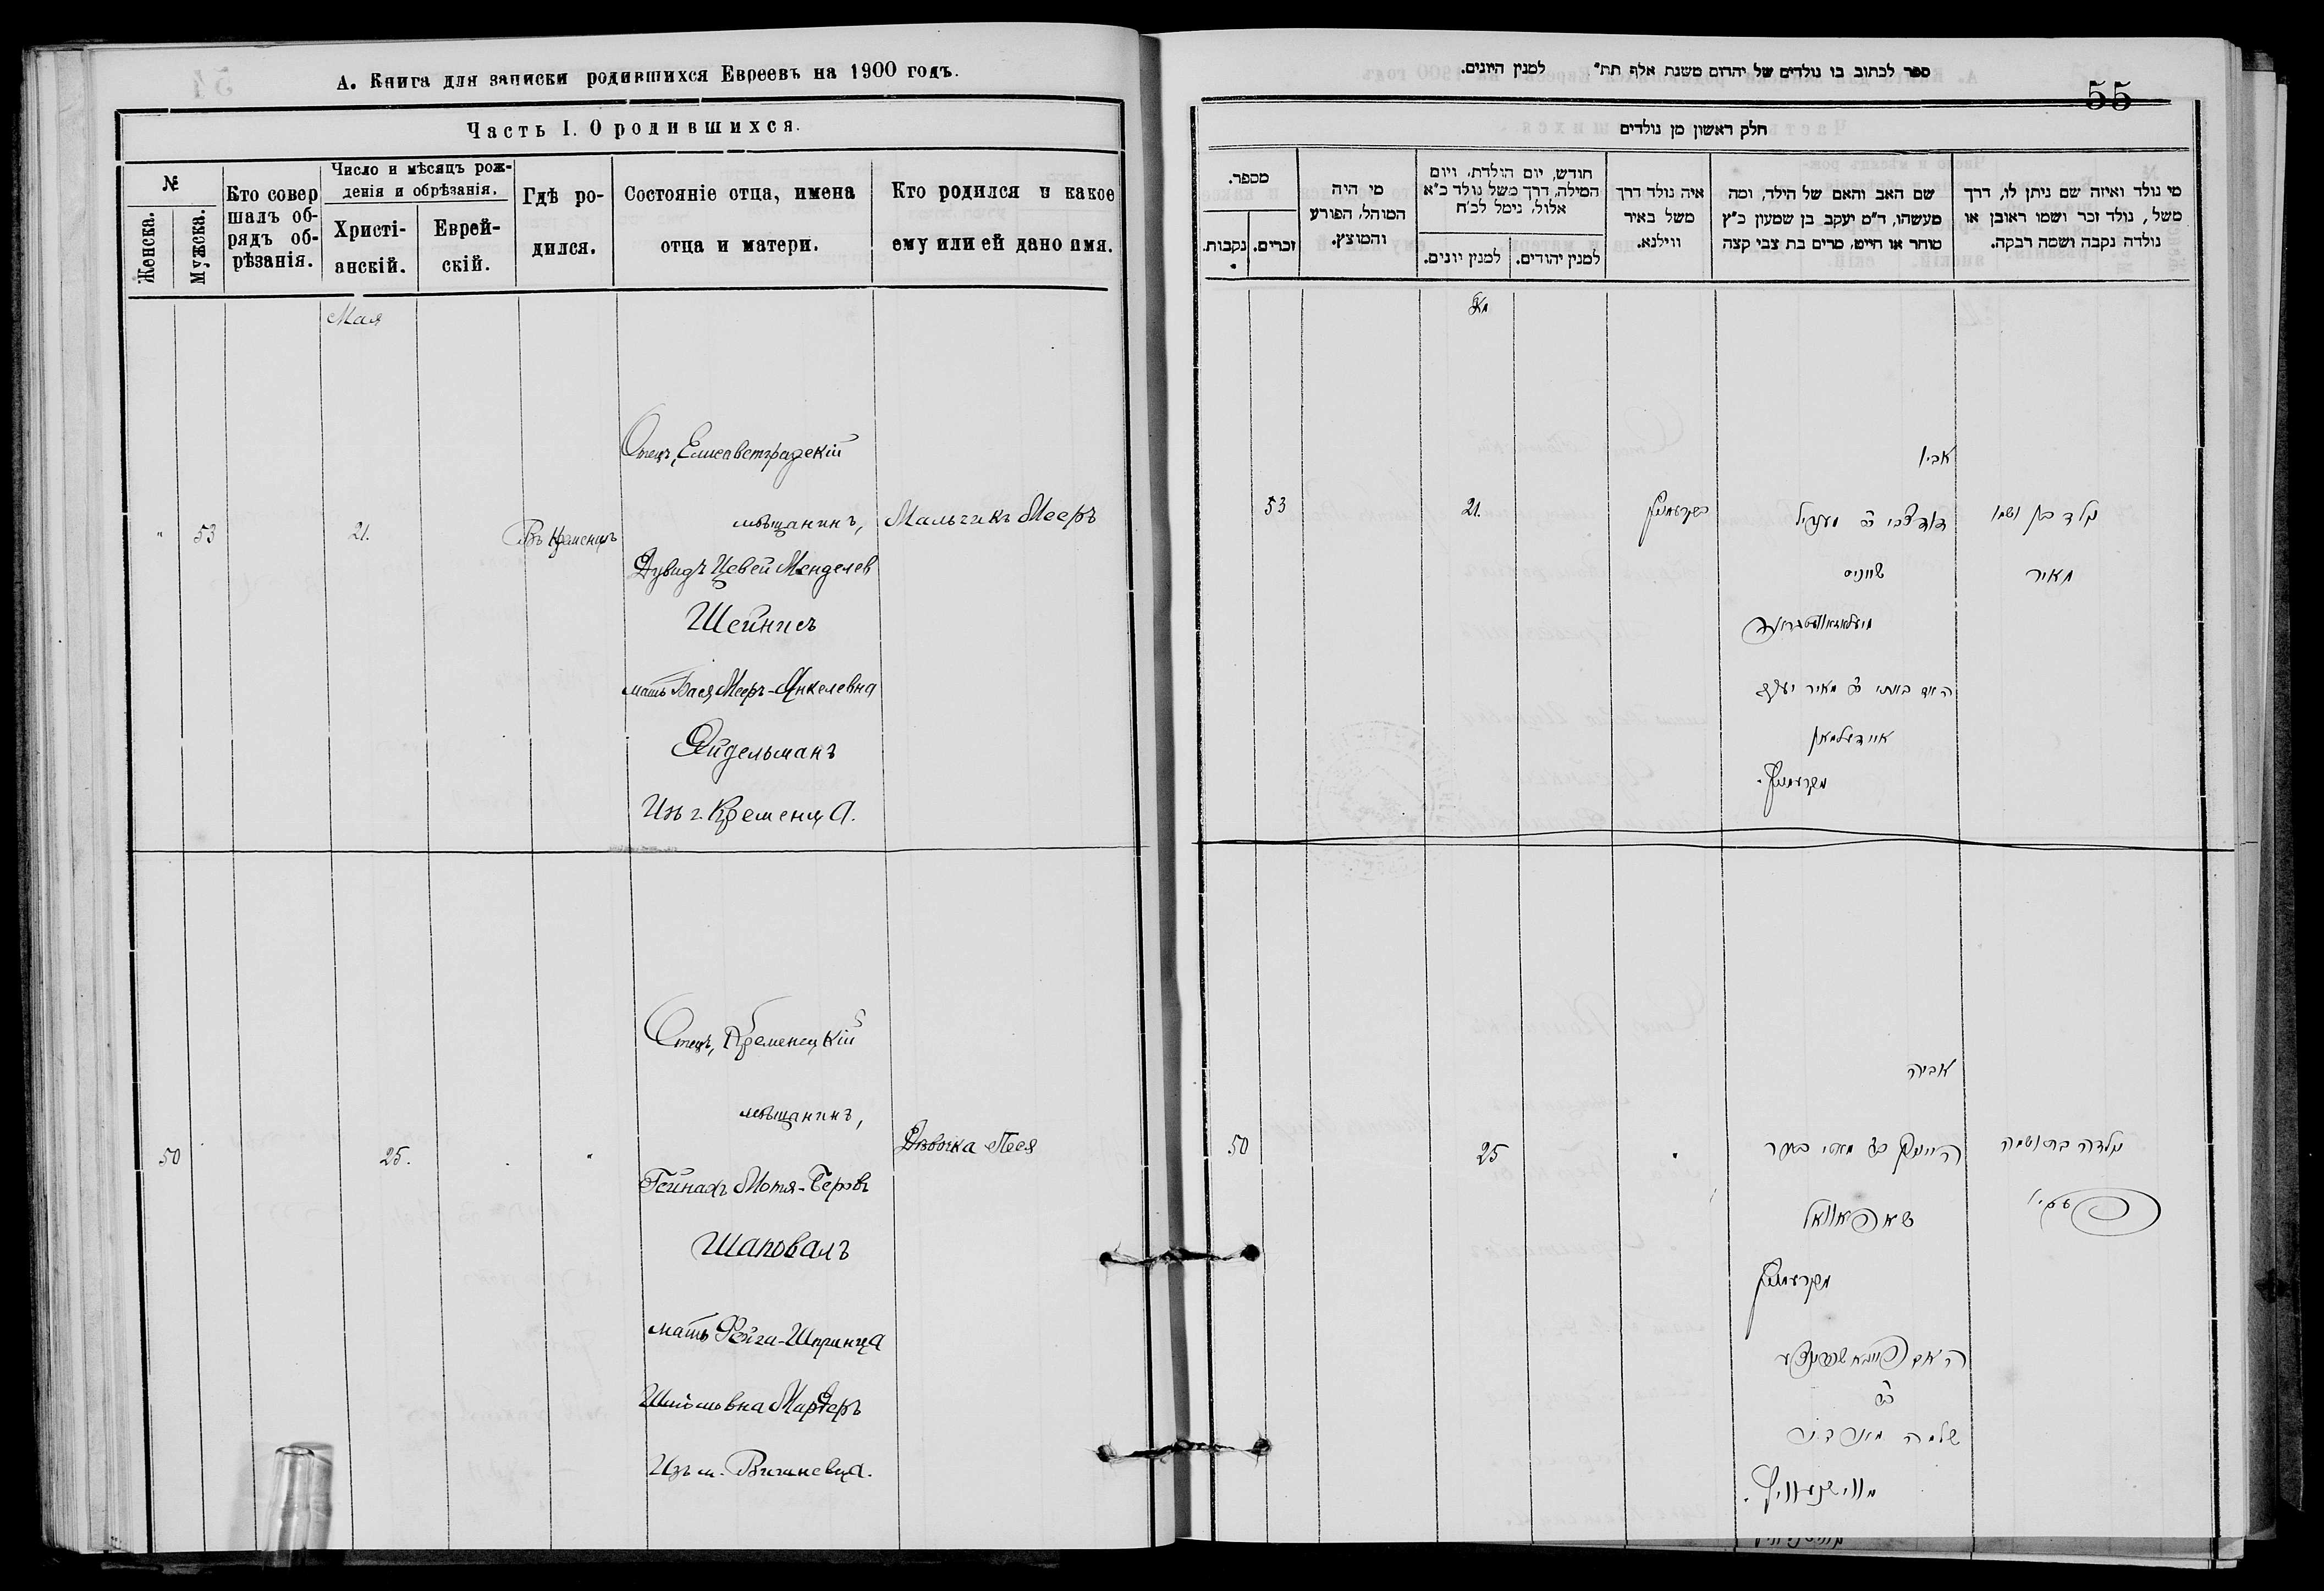 А. Книга для записки родившихся Евреевъ на 1900 годъ.
Часть I. О родившихся.
№
Женска.
Мужска.
Кто совер
шалъ об-
рядъ об-
рѣзанія.
Число и мѣсяцъ рож-
денія и обрѣзанія.
Христі-
анскій.
Еврей-
скій.
Гдѣ ро-
дился.
Состояніе отца, имена
отца и матери.
Кто родился и какое
ему или ей дано имя.
Мая
"
53
21.
Въ Кременцѣ
Отецъ, Елисаветградскій
мѣщанинъ,
Дувидъ Цевей Менделев
Шейнисъ
мать Бася Мееръ-Янкелевна
Эйдельманъ
Изъ г. Кременца.
Мальчикъ Мееръ
50
25.
"
Отецъ, Кременецкій
мѣщанинъ,
Гейнахъ Мотя-Беровъ
Шаповалъ
мать Фейга-Шпринца
Шлёмовна Мардеръ
Изъ м. Вишневца.
Дѣвочка Песя
ספר לכתוב בו נולדים של יהדום משנת אלף תת" למנין היונים.
55
חלק ראשון מן נולדים
מספר.
נקבות.
זכרים.
מי היה
המוהל, הפורע
והמוצץ.
חודש, יום הולדת, ויום
המילה, דרך משל נולד כ"א
אלול, נימל לכ"ח
למנין יונים.
למנין יהודים.
איה נולד דרך
משל באיר
ווילנא.
שם האב והאם של הילד, ומה
מעשהו, ד"מ יעקב בן שמעון כ"ץ
סוחר או חייט, מרים בת צבי קצה
מי נולד ואיזה שם ניתן לו, דרך
משל, נולד זכר ושמו ראובן או
נולדה נקבה ושמה רבקה.
מאי
53
21.
בקרעמניץ
אביו
דוד צבי ב"ר מענדיל
שייניס
האם באסי ב"ר מאיר יעקב
איידעלמאן
מקרעמניץ.
נולד בן ושמו
מאיר
50
25
"
אביה
היינעך ב"ר מאטי בער
שאפאוואל
מקרעמניץ
האם פייגא שפרינצע
ב"ר
שלמה מארדער
מווישניוויץ.
נולדה בת ושמה
פעסי